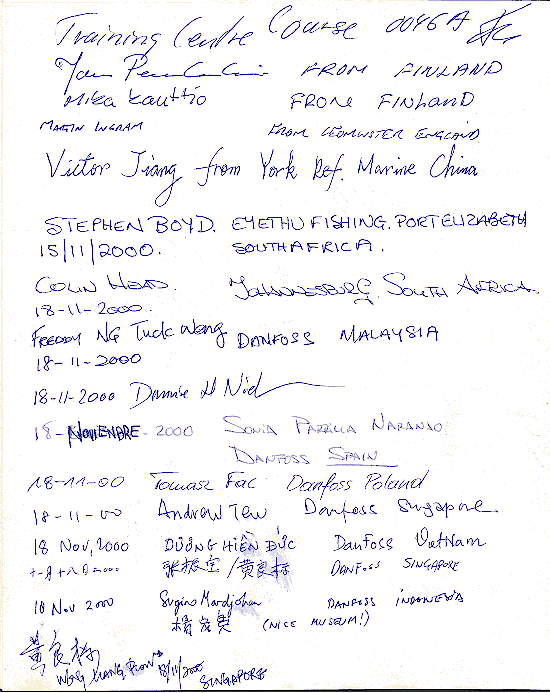 Training Centre Course 0046A
FROM FINLAND
Mika Kauttio FROM FINLAND
MARTIN INGRAM FROM LEOMINSTER ENGLAND
Victor Jiang from York Ref. Marine China
STEPHEN BOYD. EYETHU FISHING. PORT ELIZABETH
15/11/2000. SOUTH AFRICA.
COLIN HEAD. JOHANNESBURG. SOUTH AFRICA.
18-11-2000.
FREDDY NG Tuck Weng DANFOSS MALAYSIA
18-11-2000
18-11-2000
18-NOVIEMBRE-2000 SONIA PARRILLA NARANJO
DANFOSS SPAIN
18-11-00 Tomasz Fac Danfoss Poland
18-11-00 Andrew Tew Danfoss Singapore
18 Nov, 2000 DƯƠNG HIỀN ĐỨC Danfoss VietNam
十一月十八日2000 /黄良 DANFOSS SINGAPORE
18 Nov 2000 DANFOSS INDONESIA
楊 (NICE MUSEUM!)
黄良
18/11/2000 SINGAPORE